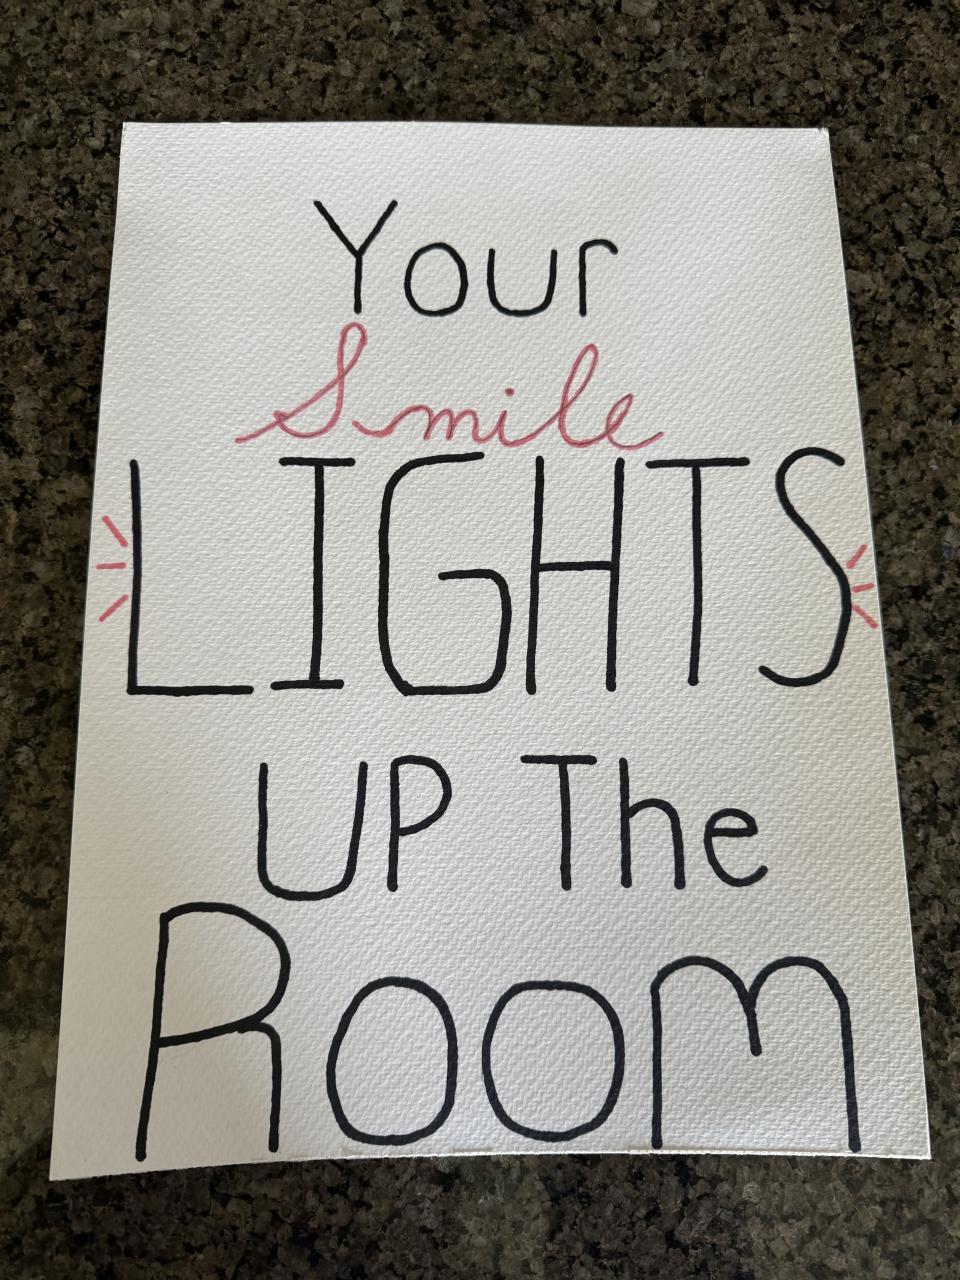 Your
Smile
LIGHTS
UP The
ROOM